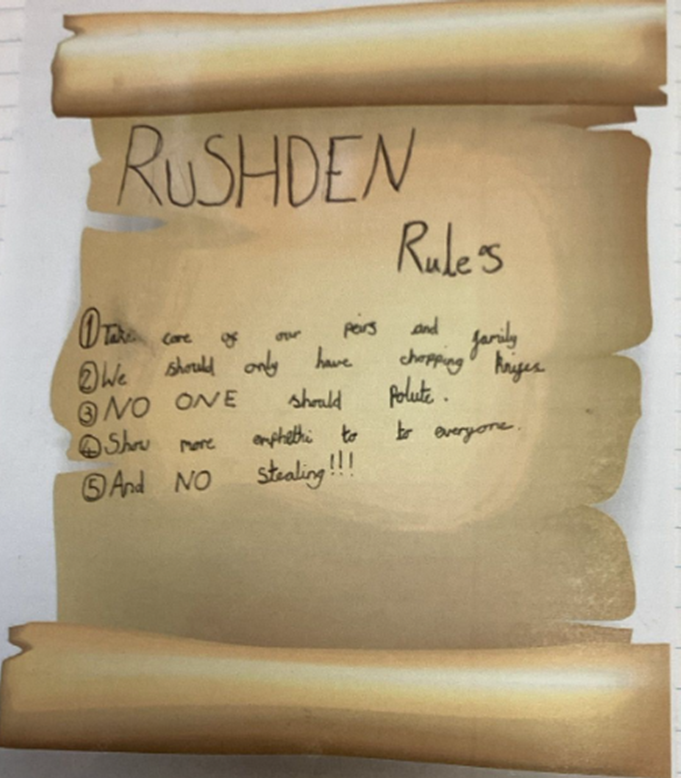 RUSHDEN
Rules
① Take care of our peirs and family
② We should only have chopping knifes
③ NO ONE should Polute.
④ Show more emphethi to to everyone.
⑤ And NO stealing!!!